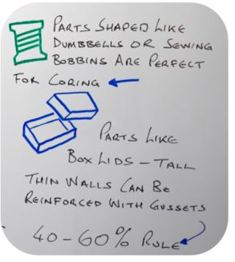 PARTS SHAPED LIKE
DUMBBELLS OR SEWING
BOBBINS ARE PERFECT
FOR CORING
PARTS LIKE
BOX LIDS - TALL
THIN WALLS CAN BE
REINFORCED WITH GUSSETS
40-60% RULE